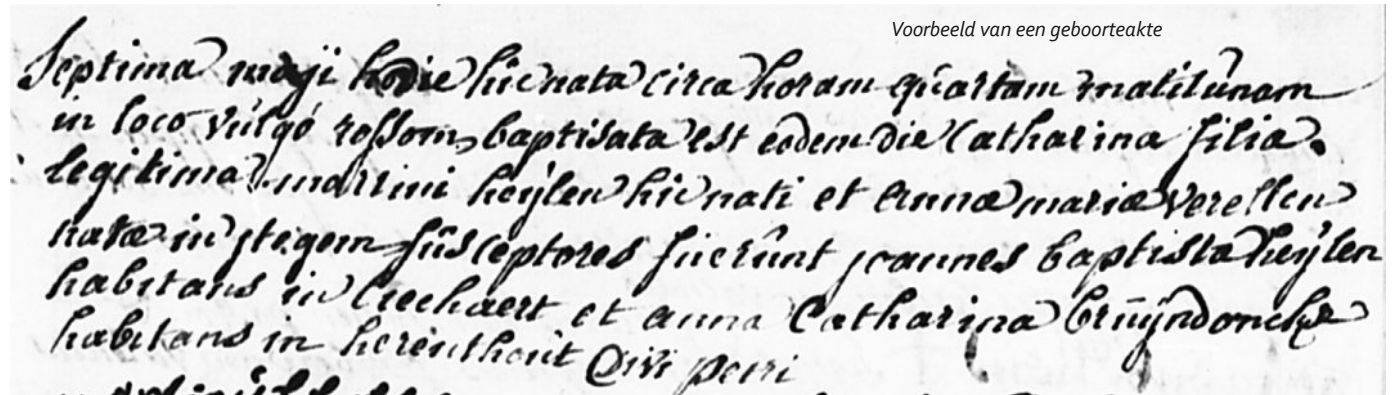 Voorbeeld van een geboorteakte
Septima maji hodie hic nata circa horam quartam matitûnam
in loco vulgo rossom baptisata est eodem die Catharina filia
legitima martini heÿlen hic nati et Annæ mariæ Verellen
natæ in itegem sûsceptores fuerûnt joannes baptista heÿlen
habitans in et anna Catharina brûÿndonckx
habitans in herenthout divi petri